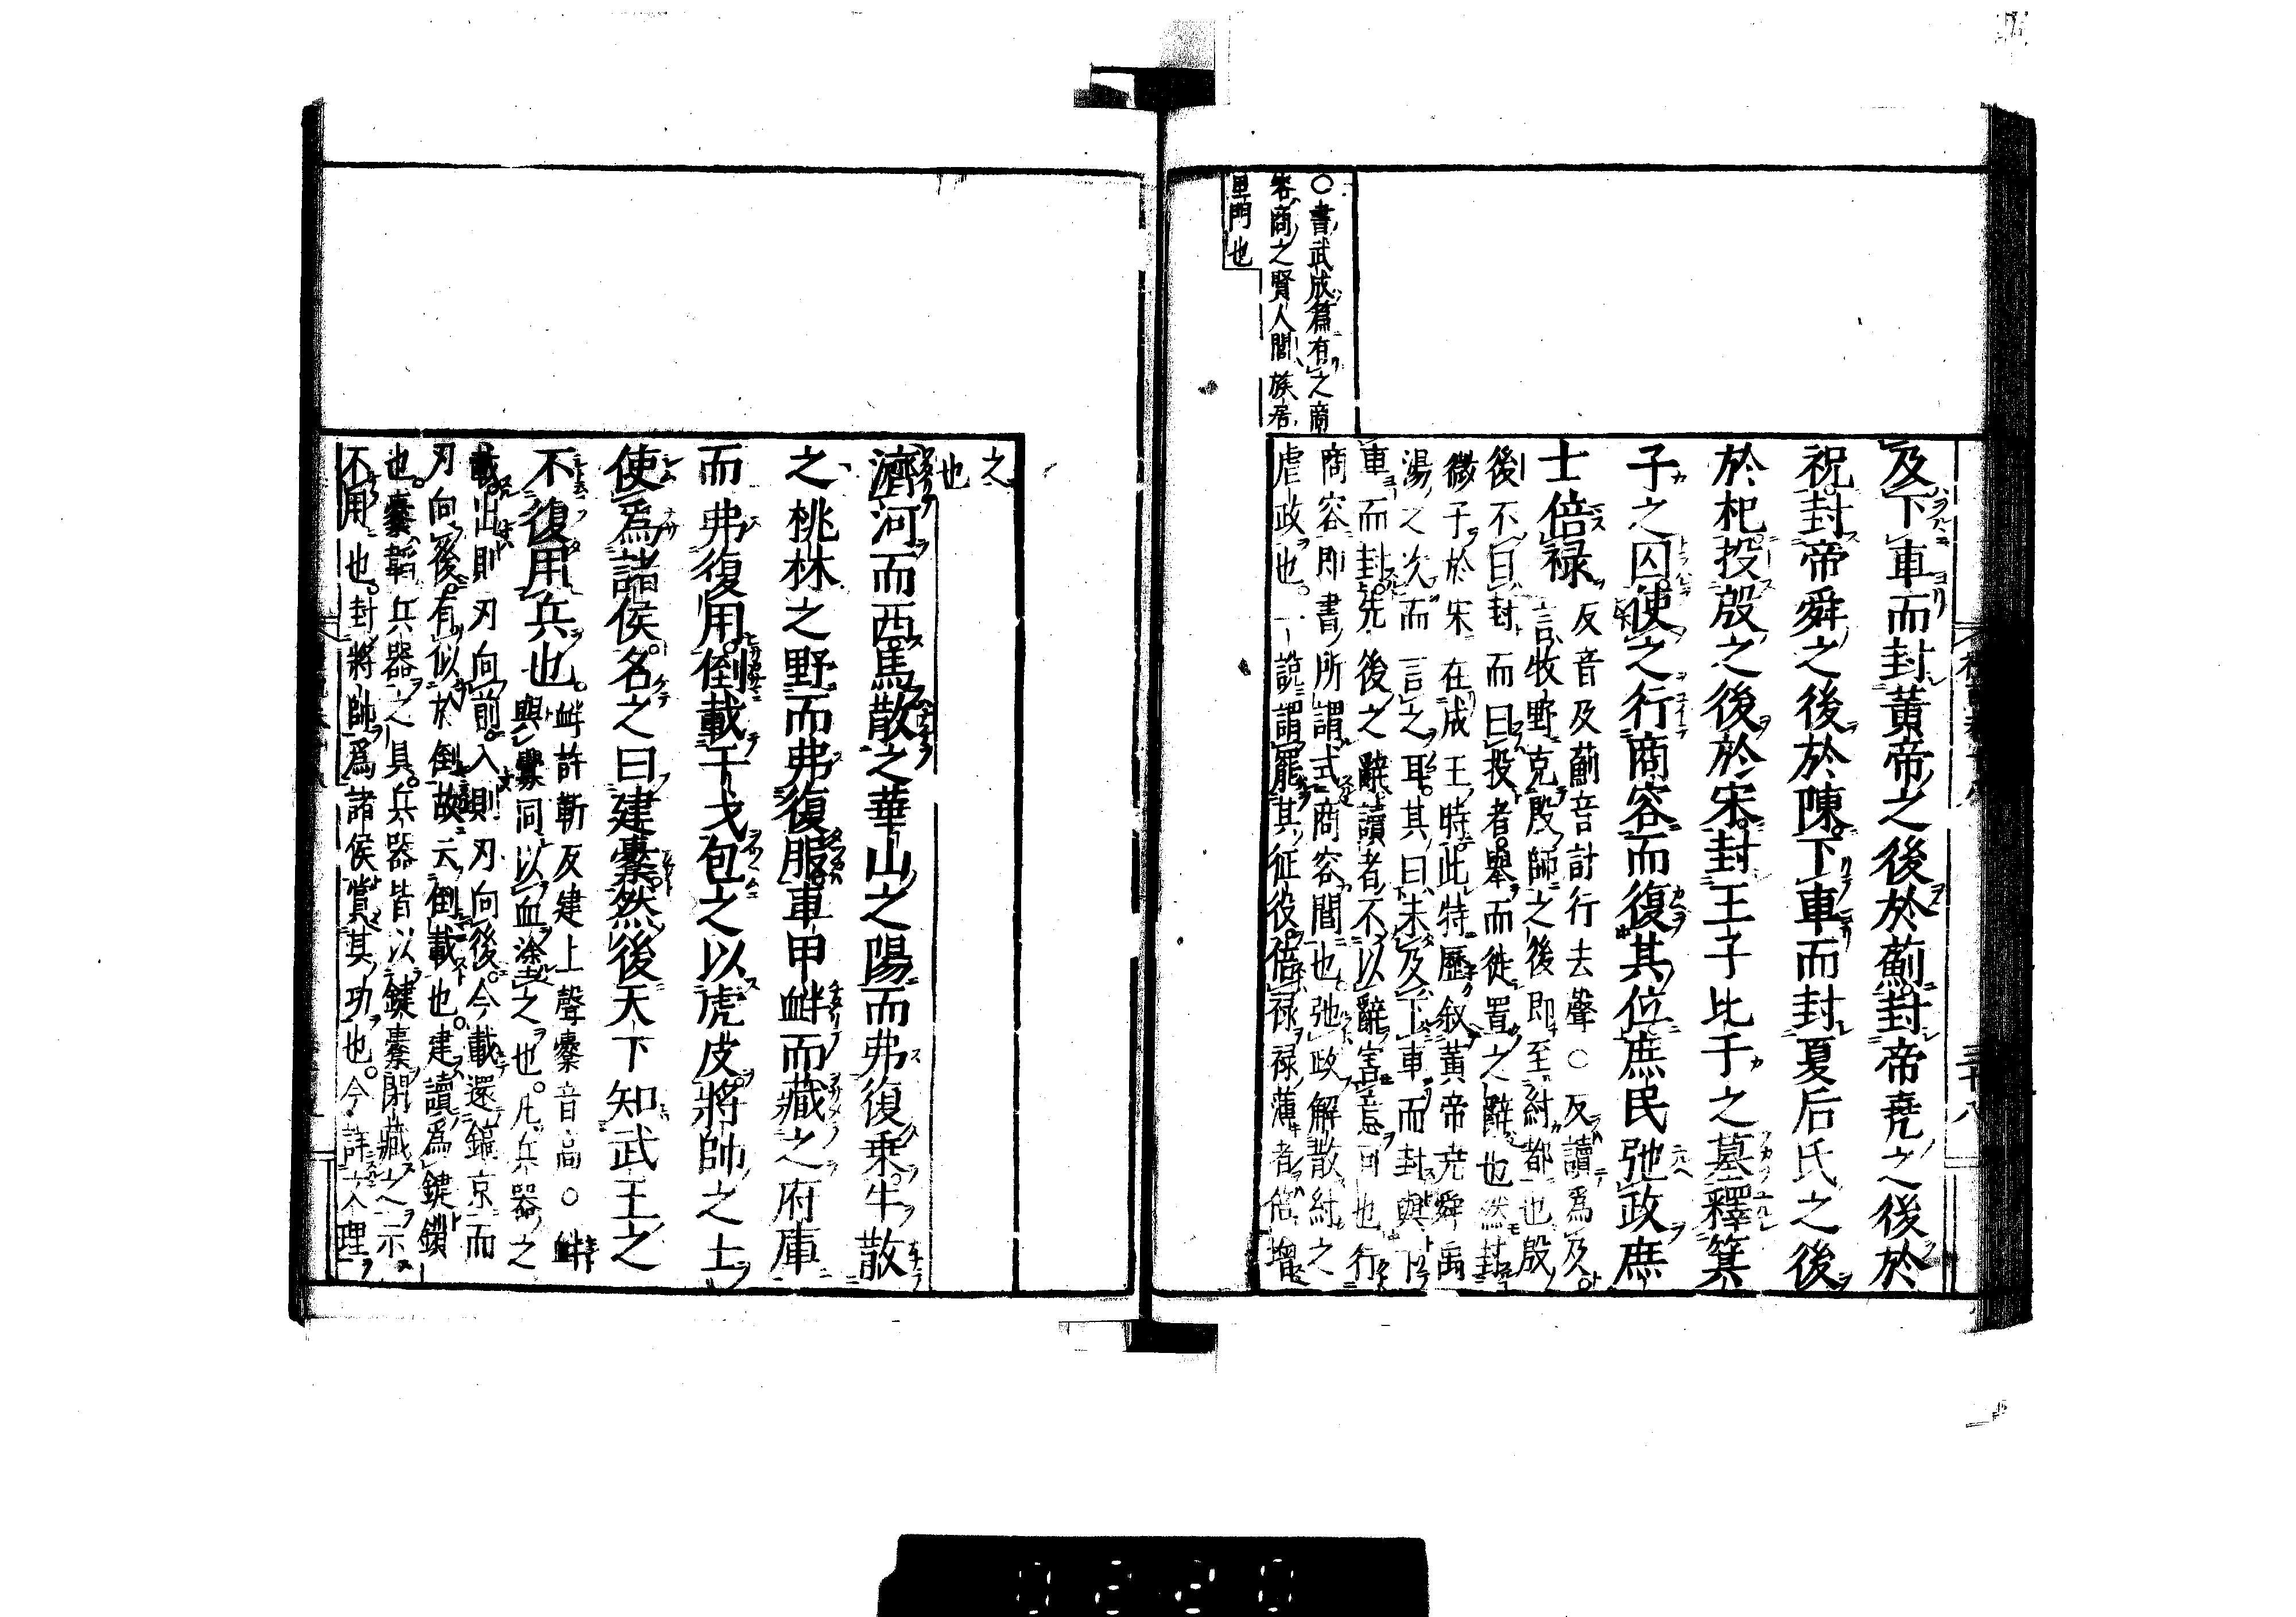 〇書武成篇有之商
容商之賢人閭族居
里門也
及下車而封黃帝之後於薊。封帝堯之後於
祝。封帝舜之後於陳。下車而封夏后氏之後
於杞。投殷之後於宋。封王子比干之墓。釋箕
子之囚。使之行商容而復其位。庶民弛政。庶
士倍祿
反音及薊音計行去聲〇反讀為及
言牧野克殷師之後即至紂都也殷
後不曰封而曰投者。舉而徙置之辭也然封
微子於宋在成王時。此特歷叙黃帝堯舜禹
湯之次而言之耳。其曰未及下車而封與下
車而封。先後之辭讀者不以辭害意可也行
商容即書所謂式商容閭也。弛政解散紂之
虐政也。一說謂罷其征役。倍祿祿薄者倍增
之
也
濟河而西。馬散之華山之陽而弗復乘。牛散
之桃林之野而弗復服。車甲衅而藏之府庫
而弗復用。倒載干戈包之以虎皮。將帥之士
使為諸侯。名之曰建櫜。然後天下知武王之
不復用兵也。
衅許靳反建上聲櫜音高〇衅
與釁同以血塗之也。凡兵器之
載。出則刃向前。入則刃向後。今載還鎬京而
刃向後。有似於倒故云倒載也。建讀為鍵鎖
也。櫜韜兵器之具。兵器皆以鍵櫜閉藏之示
不用也。封將帥為諸侯賞其功也。今詳文理
三十八
0220